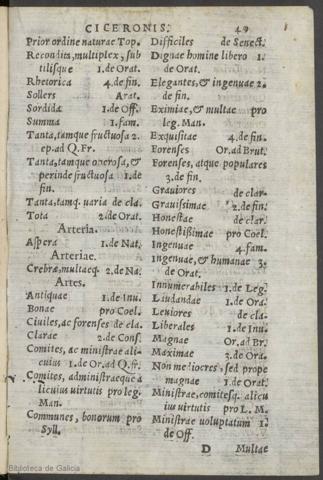 CICERONIS. 49
Prior ordine naturae Top.
Recondita, multiplex, sub
tilisque 1. de Orat.
Rhetorica 4. de fin.
Sollers Arat.
Sordida 1. de Off.
Summa 1. fam.
Tanta, tamque fructuosa 2.
ep. ad Q. Fr.
Tanta, tamque operosa, &
perinde fructuosa 1. de
fin.
Tanta, tamq. uaria de cla.
Tota 2. de Orat.
Arteria.
Aspera 1. de Nat.
Arteriae.
Crebra, multaeq. 2. de Na.
Artes.
Antiquae 1. de Inu.
Bonae pro Coel.
Ciuiles, ac forenses de cla.
Clarae 2. de Cons.
Comites, ac ministrae ali-
cuius 1. de Or. ad Q. fr.
Comites, administraeque a
licuius uirtutis pro leg.
Man.
Communes, bonorum pro
Syll.
Difficiles de Senect.
Dignae homine libero 1.
de Orat.
Elegantes, & ingenuae 2.
de fin.
Eximiae, & multae pro
leg. Man.
Exquisitae 4. de fin.
Forenses Or. ad Brut.
Forenses, atque populares
3. de fin.
Grauiores de clar.
Grauissimae 2. de fin.
Honestae de clar.
Honestissimae pro Coel.
Ingenuae 4. fam.
Ingenuae, & humanae 3.
de Orat.
Innumerabiles 1. de Leg.
Laudandae 1. de Ora.
Leuiores de cla.
Liberales 1. de Inu.
Magnae Or. ad Br.
Maximae 2. de Ora.
Non mediocres, sed prope
magnae 1. de Orat.
Ministrae, comitesq. alicu
ius uirtutis pro L. M.
Ministrae uoluptatum 1.
de Off.
D Multae
Biblioteca de Galicia